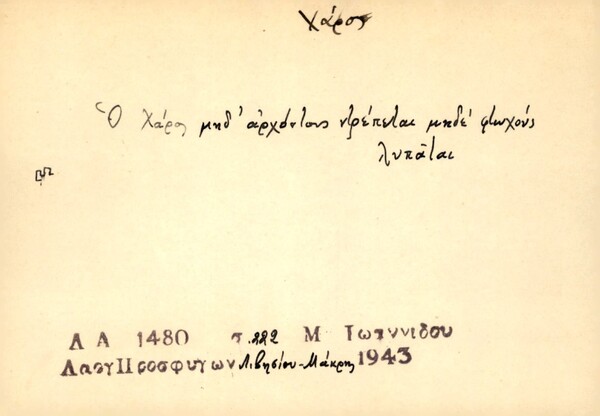 Χάρος
Ὁ Χάρος μηδ' ἀρχόντους ντρέπεται μηδέ φτωχούς
λυπᾶται
Λ Α 1480 σ. 222 Μ Ιωαννιδου
Λαογ Προσφυγων Λιβησίου-Μάκρης 1943